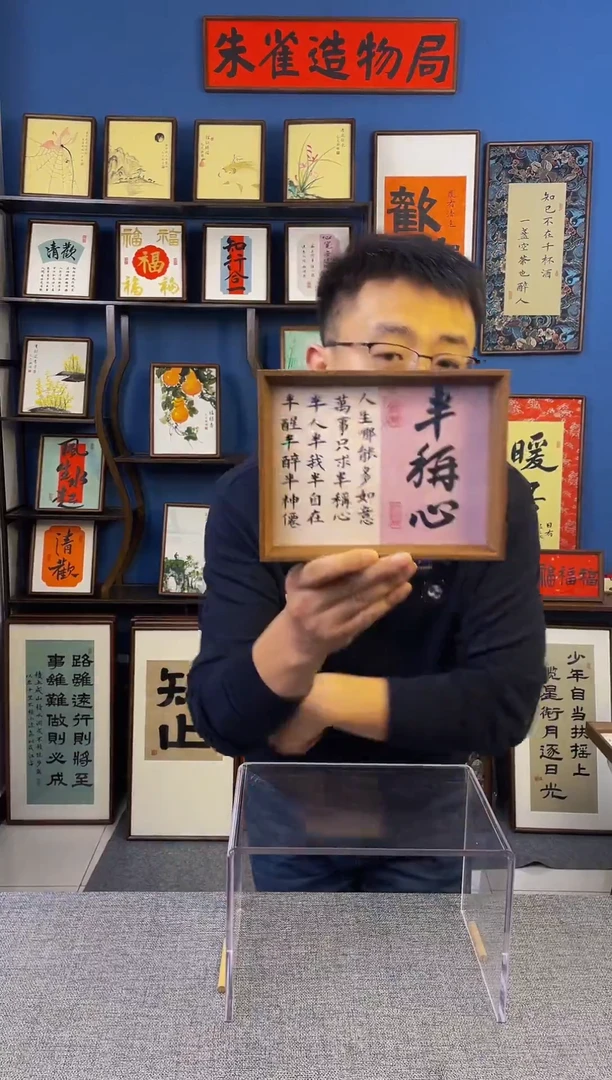 朱雀造物局
歡
知己不在千杯酒
一盞空茶也醉人
清歡
福
福
福
福
福
知行合一
半稱心
人生哪能多如意
萬事只求半稱心
半人半我半自在
半醒半醉半神僊
風生水起
暖
清歡
福福福
路雖遠行則將至
事雖難做則必成
知止
少年自當扶搖上
攬星銜月逐日光